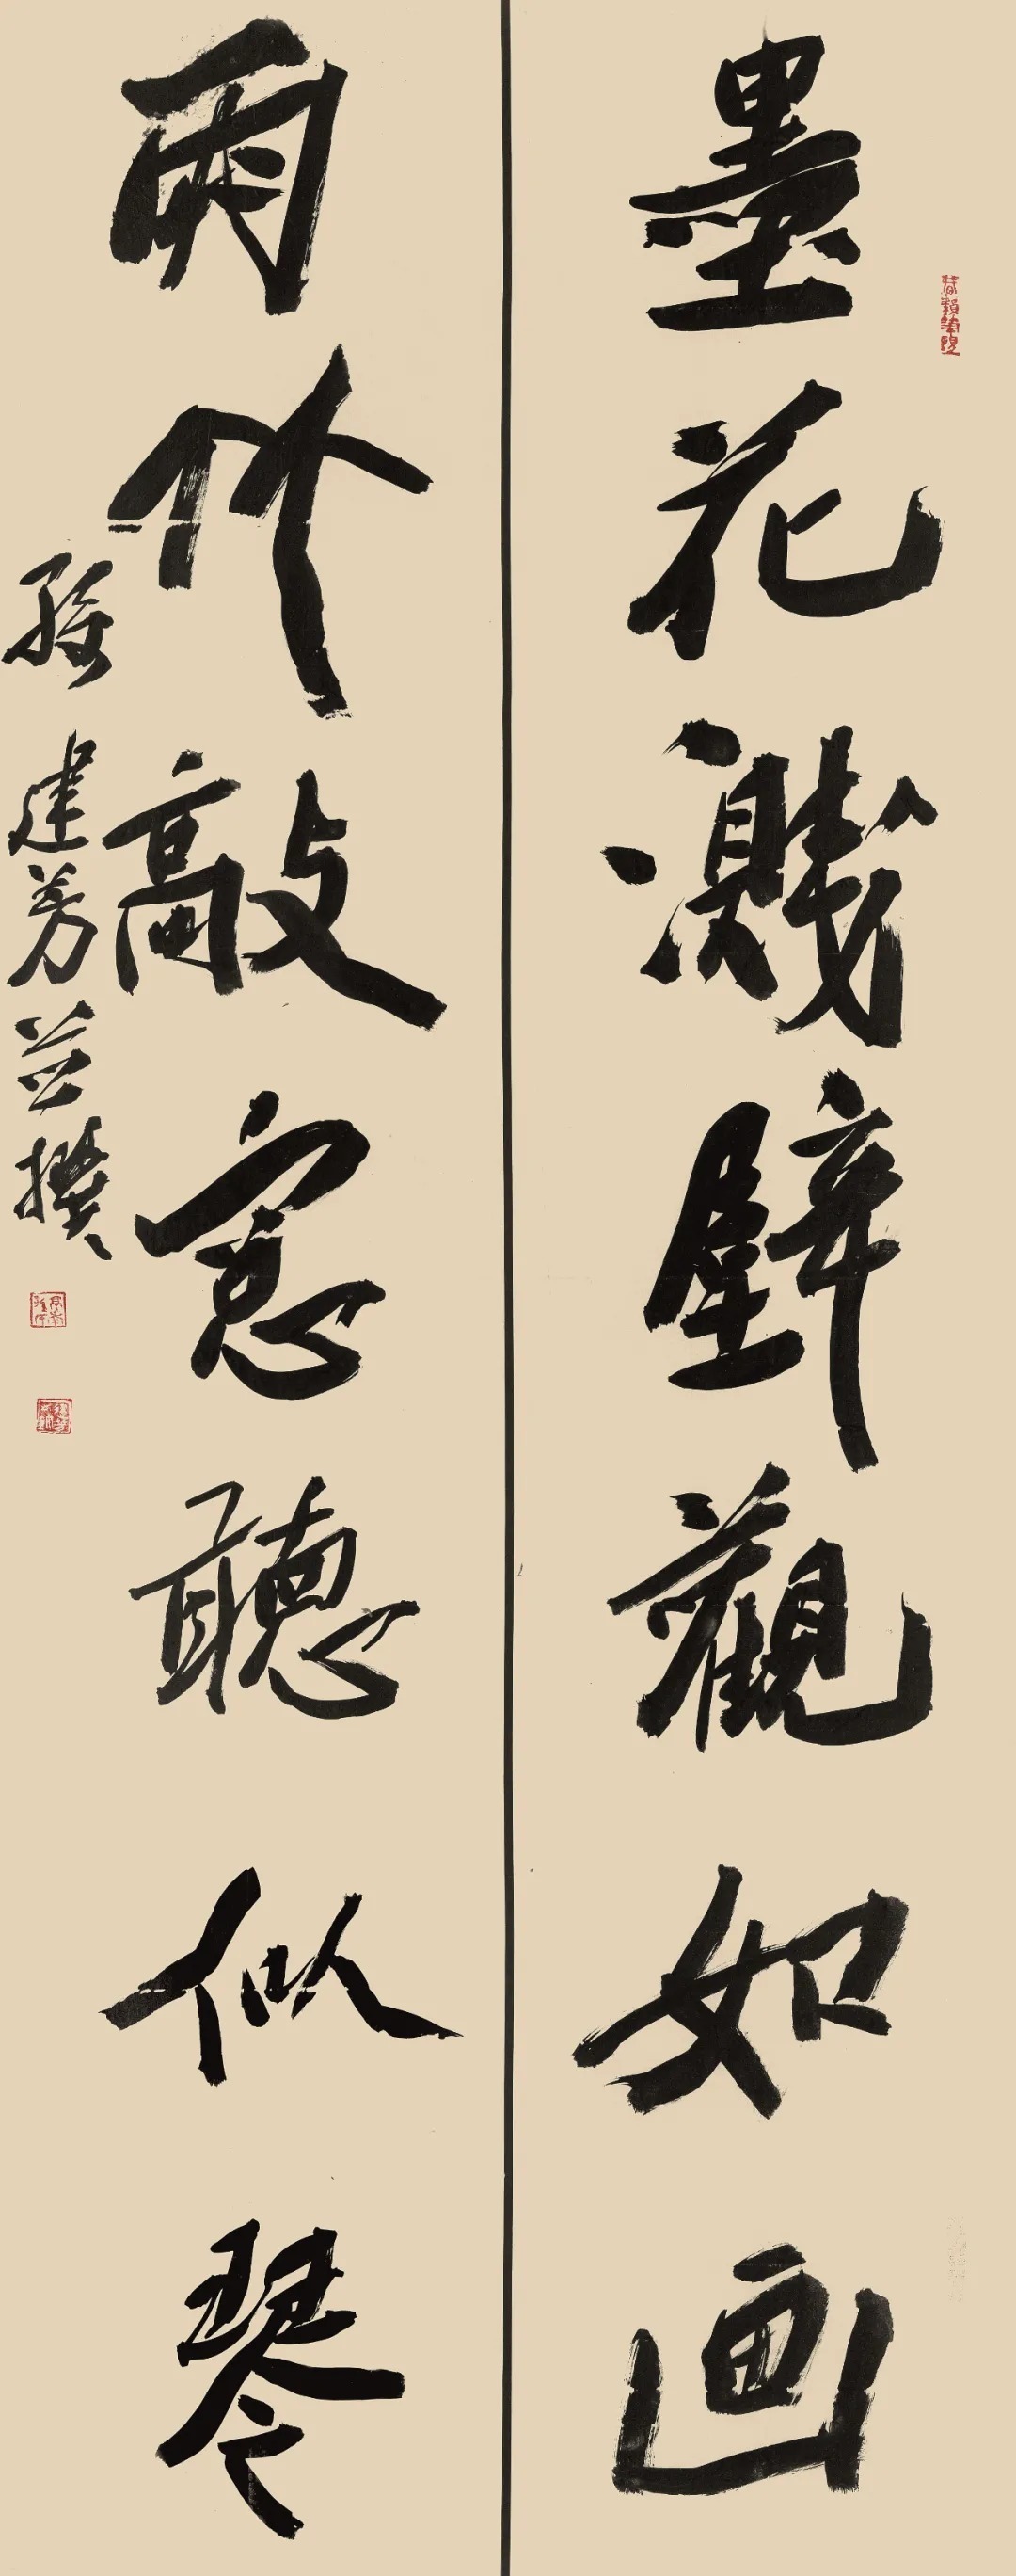 墨花濺壁觀如画
雨竹敲窗聽似琴
孫建勇并撰